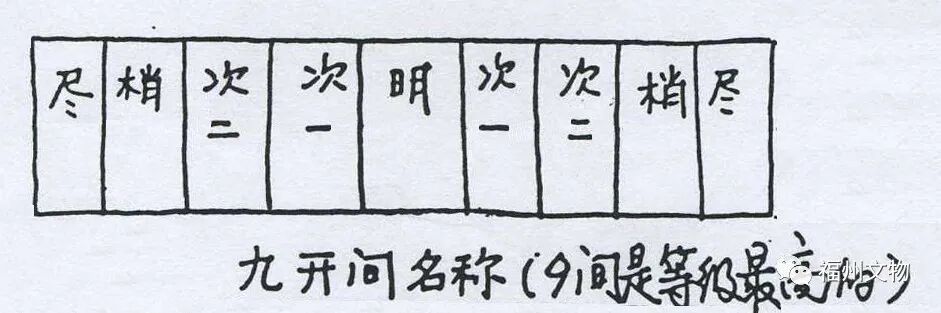 尽 梢 次二 次一 明 次一 次二 梢 尽
九开间名称(9间是等级最高的)
福州文物